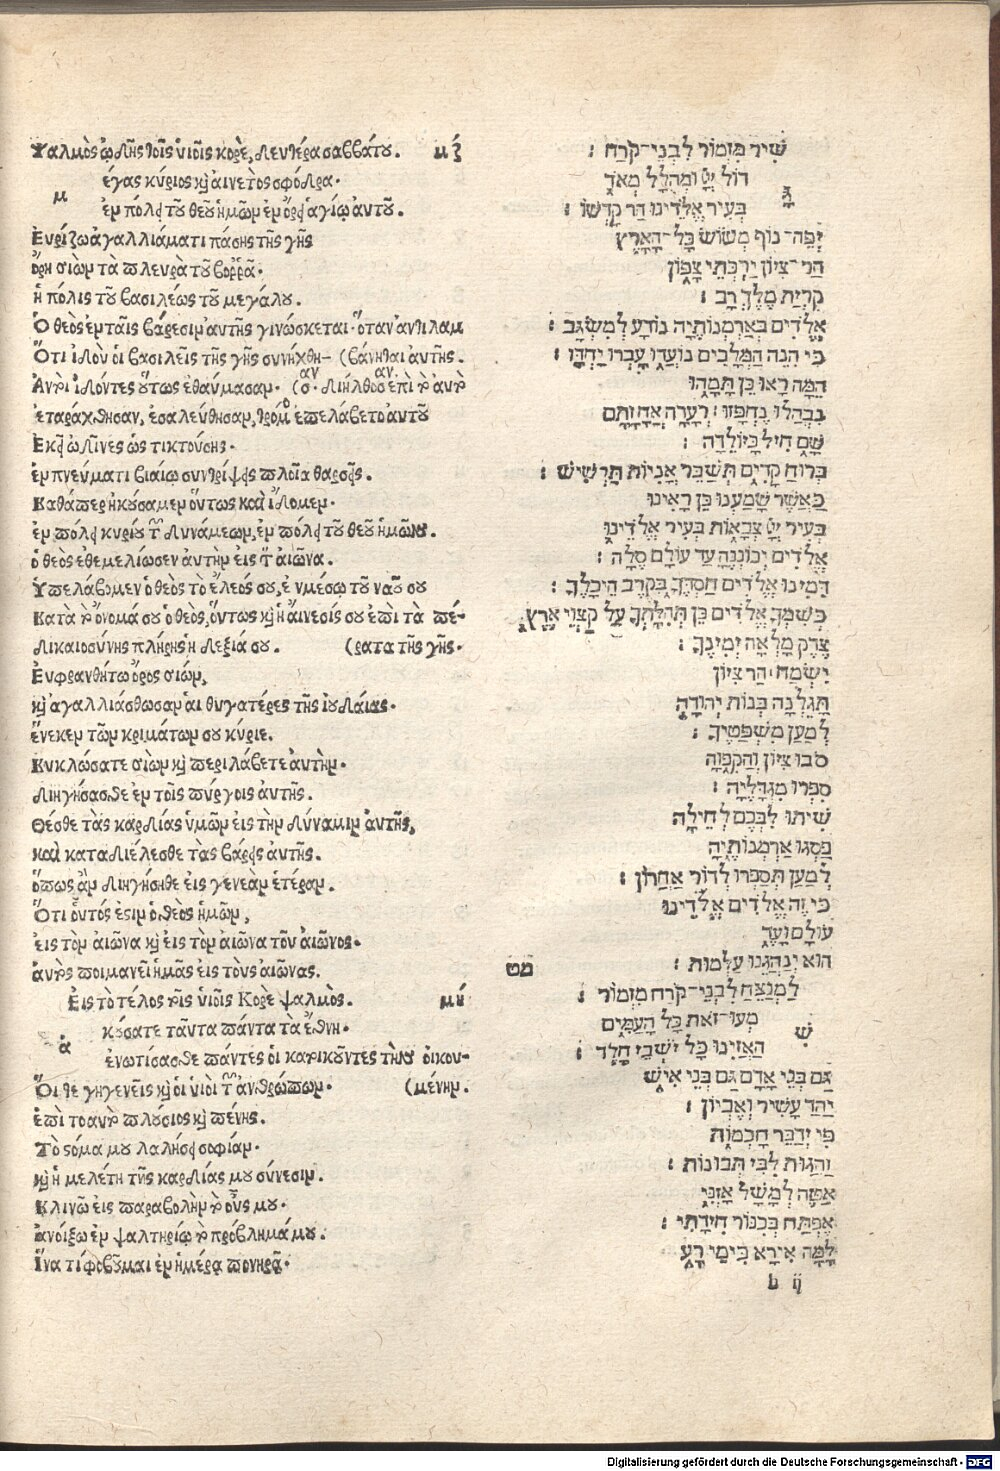 Ψαλμὸς ᾠδῆς τοῖς υἱοῖς κορέ, δευτέρα σαββάτου. μζ
μ έγας κύριος κỳ αἰνετὸς σφόδρα·
ἐν πόλει τοῦ θεοῦ ἡμῶν ἐν ὄρει ἁγίῳ αὐτοῦ.
Ἐυρίζῳ ἀγαλλιάματι πάσης τῆς γῆς
ὄρη σιὼν τὰ πλευρὰ τοῦ βορρᾶ·
ἡ πόλις τοῦ βασιλέως τοῦ μεγάλου.
Ὁ θεὸς ἐν ταῖς βάρεσιν αὐτῆς γινώσκεται· ὅταν ἀντιλαμ
Ὅτι ἰδοὺ οἱ βασιλεῖς τῆς γῆς συνήχθη– (βάνηται αὐτῆς.
Ἀυτοὶ ἰδόντες οὕτως ἐθαύμασαν· (σαν· διήλθοσαν ἐπὶ τὸ αυτὸ
ἐταράχθησαν, ἐσαλεύθησαν, τρόμος ἐπελάβετο αὐτοῦ
Ἐκεῖ ὠδῖνες ὡς τικτούσης·
ἐν πνεύματι βιαίῳ συντρίψεις πλοῖα θαρσεῖς.
Καθάπερ ἠκούσαμεν οὕτως καὶ ἴδομεν·
ἐν πόλει κυρίου τῶν δυνάμεων, ἐν πόλει τοῦ θεοῦ ἡμῶν.
ὁ θεὸς ἐθεμελίωσεν αὐτὴν εἰς τὸν αἰῶνα.
Ὑπελάβομεν ὁ θεὸς τὸ ἔλεός σου, ἐν μέσῳ τοῦ ναοῦ σου
Κατὰ τὸ ὄνομά σου ὁ θεὸς, οὕτως κỳ ἡ αἴνεσίς σου ἐπὶ τὰ πέ–
δικαιοσύνης πλήρης ἡ δεξιά σου. (ρατα τῆς γῆς·
Ἐυφρανθήτω ὄρος σιών,
κỳ ἀγαλλιάσθωσαν αἱ θυγατέρες τῆς ἰουδαίας·
ἕνεκεν τῶν κριμάτων σου κύριε.
Κυκλώσατε σιὼν κỳ περιλάβετε ἀυτὴν·
διηγήσασθε ἐν τοῖς πύργοις ἀυτῆς.
Θέσθε τὰς καρδίας ὑμῶν εἰς τὴν δύναμιν ἀυτῆς,
καὶ καταδιέλεσθε τὰς βάρεις ἀυτῆς.
ὅπως ἂν διηγήσηθε εἰς γενεὰν ἑτέραν.
Ὅτι οὗτός ἐστιν ὁ θεὸς ἡμῶν,
εἰς τὸν αἰῶνα κỳ εἰς τὸν αἰῶνα τοῦ αἰῶνος·
ἀυτὸς ποιμανεῖ ἡμᾶς εἰς τοὺς αἰῶνας.
Εἰς τὸ τέλος τοῖς υἱοῖς Κορὲ ψαλμὸς. μή
ἀ κούσατε ταῦτα πάντα τὰ ἔθνη·
ἐνωτίσασθε πάντες οἱ κατοικοῦντες τὴν οἰκου–
Ὅι τε γηγενεῖς κỳ οἱ υἱοὶ τῶν ἀνθρώπων· (μένην.
ἐπὶ τοαυτὸ πλούσιος κỳ πένης.
Τὸ στόμα μου λαλήσει σοφίαν·
κỳ ἡ μελέτη τῆς καρδίας μου σύνεσιν.
Κλινῶ εἰς παραβολὴν τὸ οὖς μου·
ἀνοίξω ἐν ψαλτηρίῳ τὸ πρόβλημά μου.
Ἵνα τί φοβοῦμαι ἐν ἡμέρᾳ πονηρᾷ·
שִׁיר מִזְמוֹר לִבְנֵי־קֹרַח :
גָּ דוֹל יְיָ וּמְהֻלָּל מְאֹד
בְּעִיר אֱלֹהֵינוּ הַר קָדְשׁוֹ :
יְפֵה־נוֹף מְשׂוֹשׂ כָּל־הָאָרֶץ
הַר־צִיּוֹן יַרְכְּתֵי צָפוֹן
קִרְיַת מֶלֶךְ רָב :
אֱלֹהִים בְּאַרְמְנוֹתֶיהָ נוֹדַע לְמִשְׂגָּב :
כִּי הִנֵּה הַמְּלָכִים נוֹעֲדוּ עָבְרוּ יַחְדָּו :
הֵמָּה רָאוּ כֵּן תָּמָהוּ
נִבְהֲלוּ נֶחְפָּזוּ : רְעָדָה אֲחָזָתַם
שָׁם חִיל כַּיּוֹלֵדָה :
בְּרוּחַ קָדִים תְּשַׁבֵּר אֳנִיּוֹת תַּרְשִׁישׁ :
כַּאֲשֶׁר שָׁמַעְנוּ כֵּן רָאִינוּ
בְּעִיר יְיָ צְבָאוֹת בְּעִיר אֱלֹהֵינוּ
אֱלֹהִים יְכוֹנְנֶהָ עַד עוֹלָם סֶלָה :
דִּמִּינוּ אֱלֹהִים חַסְדֶּךָ בְּקֶרֶב הֵיכָלֶךָ :
כְּשִׁמְךָ אֱלֹהִים כֵּן תְּהִלָּתְךָ עַל קַצְוֵי אֶרֶץ
צֶדֶק מָלְאָה יְמִינֶךָ :
יִשְׂמַח הַר צִיּוֹן
תָּגֵלְנָה בְּנוֹת יְהוּדָה
לְמַעַן מִשְׁפָּטֶיךָ :
סֹבּוּ צִיּוֹן וְהַקִּפוּהָ
סִפְרוּ מִגְדָּלֶיהָ :
שִׁיתוּ לִבְּכֶם לְחֵילָה
פַּסְּגוּ אַרְמְנוֹתֶיהָ
לְמַעַן תְּסַפְּרוּ לְדוֹר אַחֲרוֹן :
כִּי זֶה אֱלֹהִים אֱלֹהֵינוּ
עוֹלָם וָעֶד
הוּא יְנַהֲגֵנוּ עַלְמוּת : מט
לַמְנַצֵּחַ לִבְנֵי־קֹרַח מִזְמוֹר :
שִׁ מְעוּ־זֹאת כָּל הָעַמִּים
הַאֲזִינוּ כָּל יֹשְׁבֵי חָלֶד :
גַּם בְּנֵי אָדָם גַּם בְּנֵי אִישׁ
יַחַד עָשִׁיר וְאֶבְיוֹן :
פִּי יְדַבֵּר חָכְמוֹת
וְהָגוּת לִבִּי תְבוּנוֹת :
אַטֶּה לְמָשָׁל אָזְנִי
אֶפְתַּח בְּכִנּוֹר חִידָתִי :
לָמָּה אִירָא בִּימֵי רָע
h ij
Digitalisierung gefördert durch die Deutsche Forschungsgemeinschaft - DFG